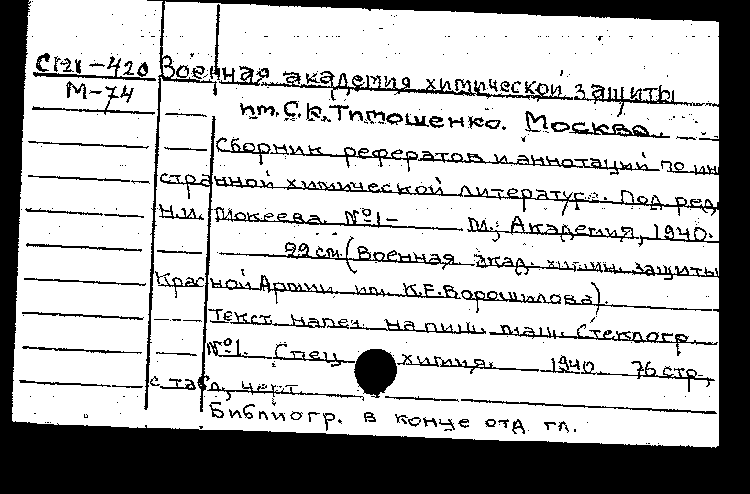 С121-420 Военная академия химической защиты
М-74
им. С.К. Тимошенко. Москва.
Сборник рефератов и аннотаций по ин
странной химической литературе. Под ред.
Н.И. Мокеева. №1- М., Академия, 1940.
22 см (Военная акад. химич. защиты
Красной Армии им. К.Е. Ворошилова).
Текст напеч. на пиш. маш. Стеклогр.
№1. Спец химия. 1940. 76 стр,
с табл, черт.
Библиогр. в конце отд гл.